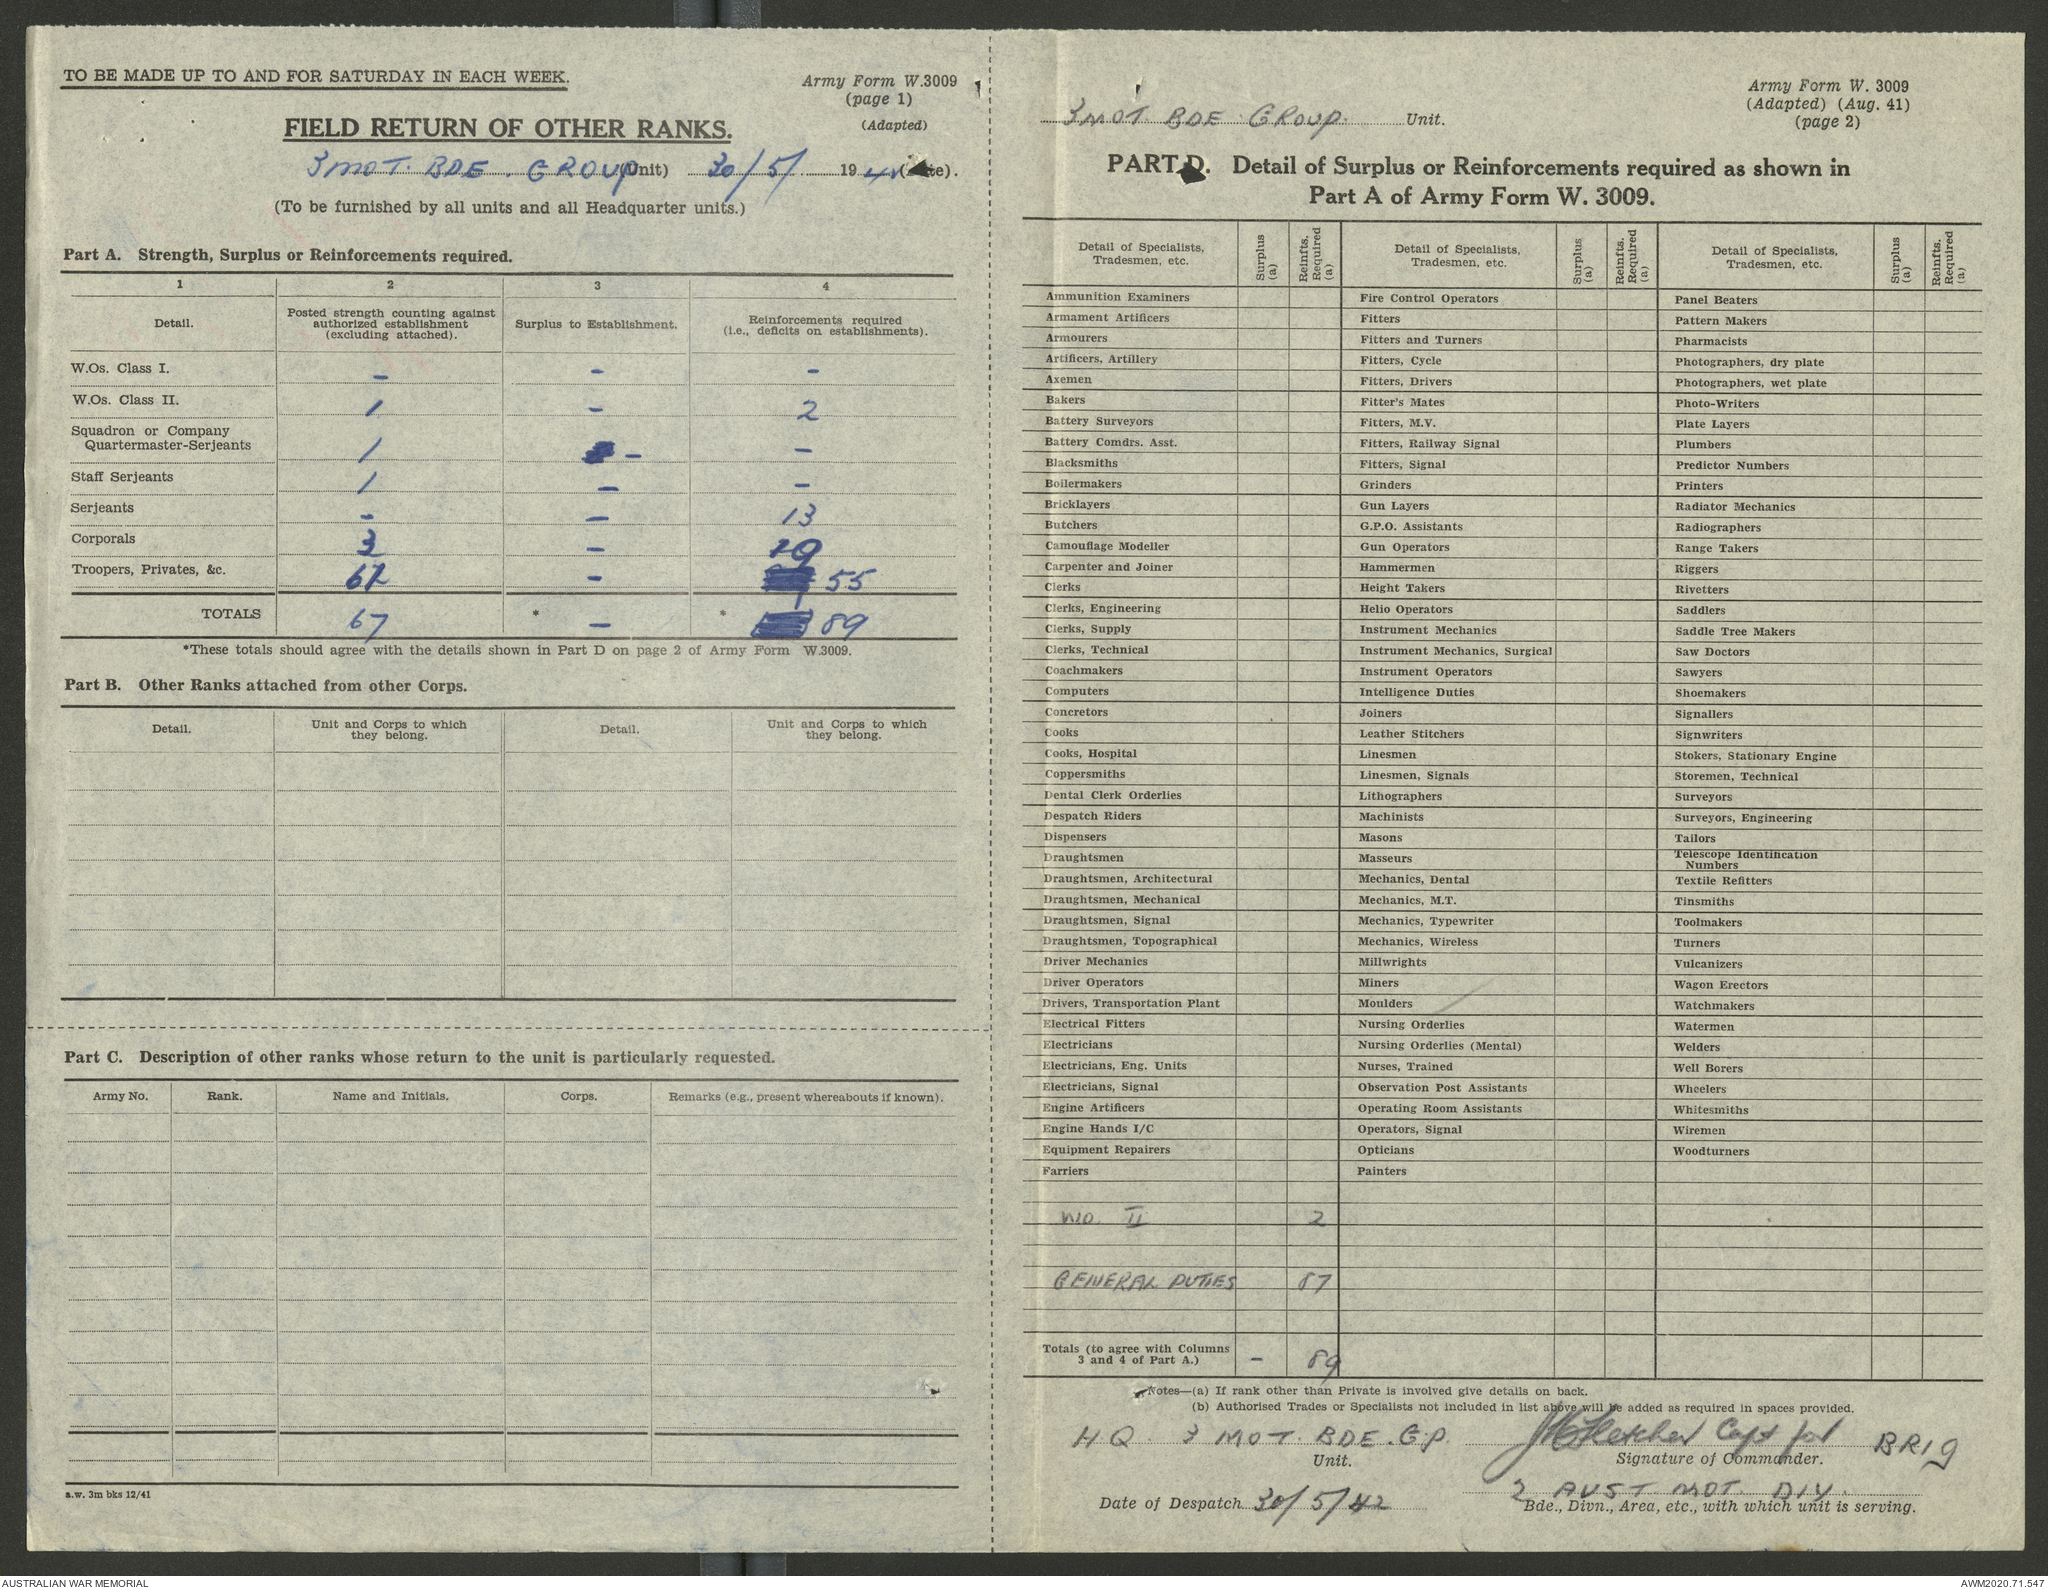 TO BE MADE UP TO AND FOR SATURDAY IN EACH WEEK.
Army Form W.3009
(page 1)
(Adapted)
FIELD RETURN OF OTHER RANKS.
3 MOT. BDE. GROUP (Unit) 30/5/ 1942 (Date).
(To be furnished by all units and all Headquarter units.)
Part A. Strength, Surplus or Reinforcements required.
1 2 3 4
Detail. Posted strength counting against authorized establishment (excluding attached). Surplus to Establishment. Reinforcements required (i.e., deficits on establishments).
W.Os. Class I. – – –
W.Os. Class II. 1 – 2
Squadron or Company
Quartermaster-Serjeants 1 – –
Staff Serjeants 1 – –
Serjeants – – 13
Corporals 3 – 19
Troopers, Privates, &c. – 55
TOTALS 67 * – * 89
*These totals should agree with the details shown in Part D on page 2 of Army Form W.3009.
Part B. Other Ranks attached from other Corps.
Detail. Unit and Corps to which they belong. Detail. Unit and Corps to which they belong.
Part C. Description of other ranks whose return to the unit is particularly requested.
Army No. Rank. Name and Initials. Corps. Remarks (e.g., present whereabouts if known).
a.w. 3m bks 12/41
Army Form W. 3009
(Adapted) (Aug. 41)
(page 2)
3 MOT BDE GROUP. Unit.
PART D. Detail of Surplus or Reinforcements required as shown in
Part A of Army Form W. 3009.
Detail of Specialists, Tradesmen, etc. Surplus (a) Reinfts. Required (a) Detail of Specialists, Tradesmen, etc. Surplus (a) Reinfts. Required (a) Detail of Specialists, Tradesmen, etc. Surplus (a) Reinfts. Required (a)
Ammunition Examiners Fire Control Operators Panel Beaters
Armament Artificers Fitters Pattern Makers
Armourers Fitters and Turners Pharmacists
Artificers, Artillery Fitters, Cycle Photographers, dry plate
Axemen Fitters, Drivers Photographers, wet plate
Bakers Fitter's Mates Photo-Writers
Battery Surveyors Fitters, M.V. Plate Layers
Battery Comdrs. Asst. Fitters, Railway Signal Plumbers
Blacksmiths Fitters, Signal Predictor Numbers
Boilermakers Grinders Printers
Bricklayers Gun Layers Radiator Mechanics
Butchers G.P.O. Assistants Radiographers
Camouflage Modeller Gun Operators Range Takers
Carpenter and Joiner Hammermen Riggers
Clerks Height Takers Rivetters
Clerks, Engineering Helio Operators Saddlers
Clerks, Supply Instrument Mechanics Saddle Tree Makers
Clerks, Technical Instrument Mechanics, Surgical Saw Doctors
Coachmakers Instrument Operators Sawyers
Computers Intelligence Duties Shoemakers
Concretors Joiners Signallers
Cooks Leather Stitchers Signwriters
Cooks, Hospital Linesmen Stokers, Stationary Engine
Coppersmiths Linesmen, Signals Storemen, Technical
Dental Clerk Orderlies Lithographers Surveyors
Despatch Riders Machinists Surveyors, Engineering
Dispensers Masons Tailors
Draughtsmen Masseurs Telescope Identification Numbers
Draughtsmen, Architectural Mechanics, Dental Textile Refitters
Draughtsmen, Mechanical Mechanics, M.T. Tinsmiths
Draughtsmen, Signal Mechanics, Typewriter Toolmakers
Draughtsmen, Topographical Mechanics, Wireless Turners
Driver Mechanics Millwrights Vulcanizers
Driver Operators Miners Wagon Erectors
Drivers, Transportation Plant Moulders Watchmakers
Electrical Fitters Nursing Orderlies Watermen
Electricians Nursing Orderlies (Mental) Welders
Electricians, Eng. Units Nurses, Trained Well Borers
Electricians, Signal Observation Post Assistants Wheelers
Engine Artificers Operating Room Assistants Whitesmiths
Engine Hands I/C Operators, Signal Wiremen
Equipment Repairers Opticians Woodturners
Farriers Painters
WO. II 2
GENERAL DUTIES 87
Totals (to agree with Columns
3 and 4 of Part A.) – 89
Notes—(a) If rank other than Private is involved give details on back.
(b) Authorised Trades or Specialists not included in list above will be added as required in spaces provided.
HQ 3 MOT. BDE. GP. Fletcher Capt for BRIG
Unit. Signature of Commander.
2 AUST MOT DIV.
Date of Despatch 30/5/42 Bde., Divn., Area, etc., with which unit is serving.
AUSTRALIAN WAR MEMORIAL
AWM2020.71.547